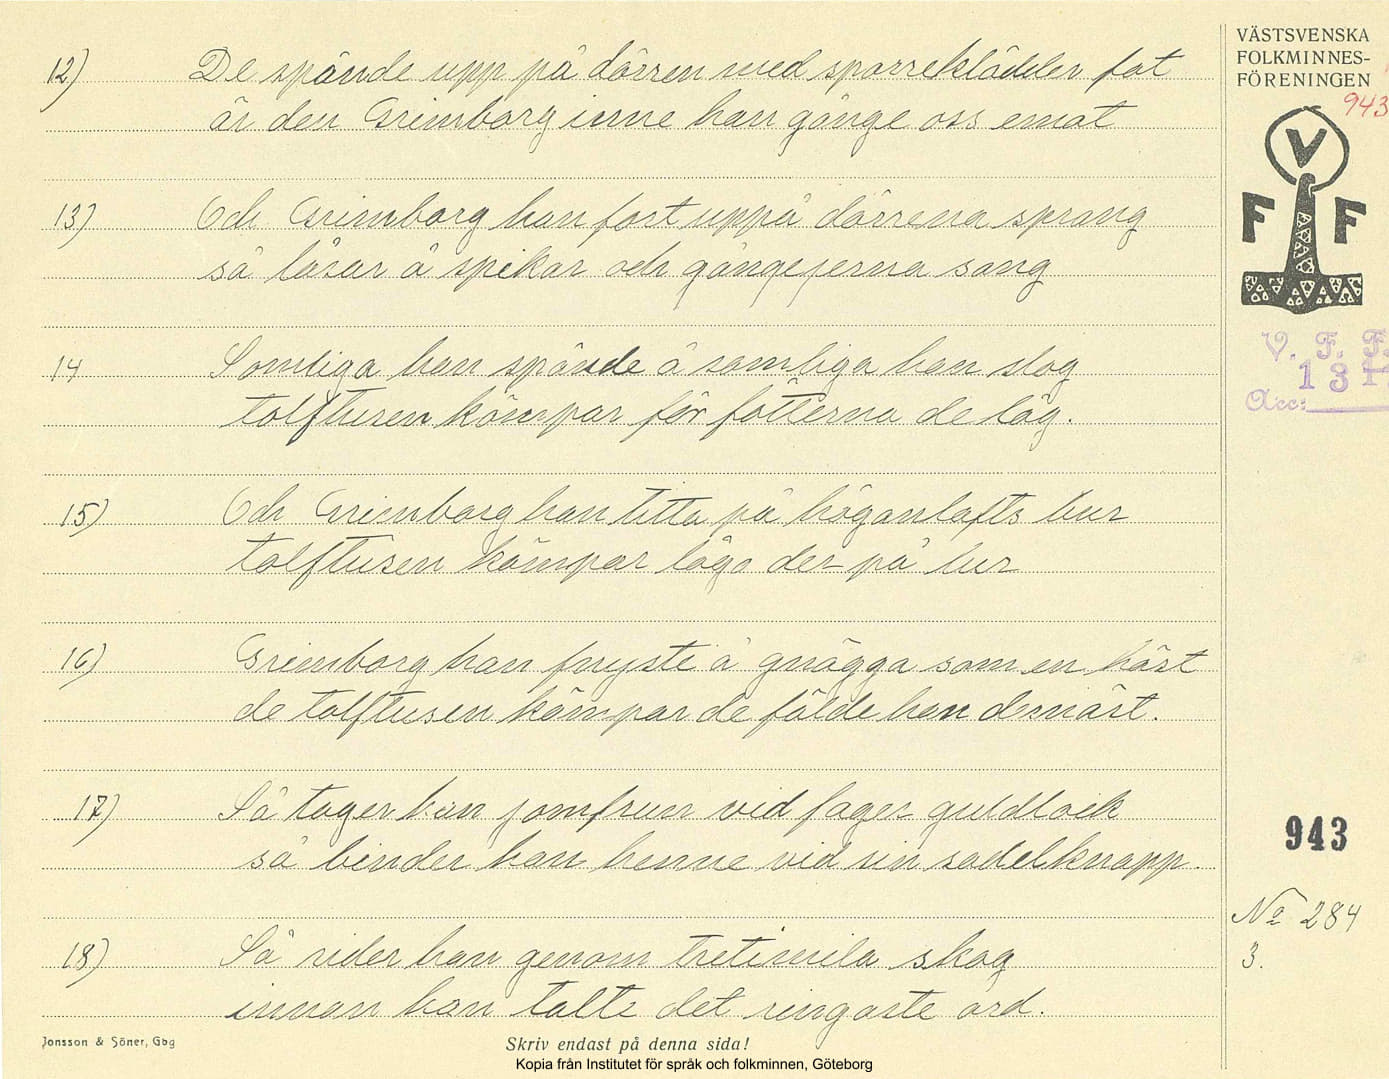 12) De spände upp på dörren med sporreklädder fot
är den Grimborg inne han gånge oss emot
13) Och Grimborg han fort uppå dörrena sprang
så låsar å spikar och gångejerna sang
14 Somliga han spände å somliga han slog
tolftusen kämpar för fötterna de låg.
15) Och Grimborg han titta på höganlofts bur
tolftusen kämpar lågo der på lur
16) Grimborg han fnyste å gnägga som en häst
de tolftusen kämpar de fälde han dernäst.
17) Så tager han jomfrun vid fager guldlock
så binder han henne vid sin sadelknapp.
18) Så rider han genom tretimila skog
innan han talte det ringaste ord.
Jonsson & Söner, Gbg
Skriv endast på denna sida!
Kopia från Institutet för språk och folkminnen, Göteborg
VÄSTSVENSKA
FOLKMINNES-
FÖRENINGEN
943
V
F F
V. F. F.
Acc:
943
No 284
3.